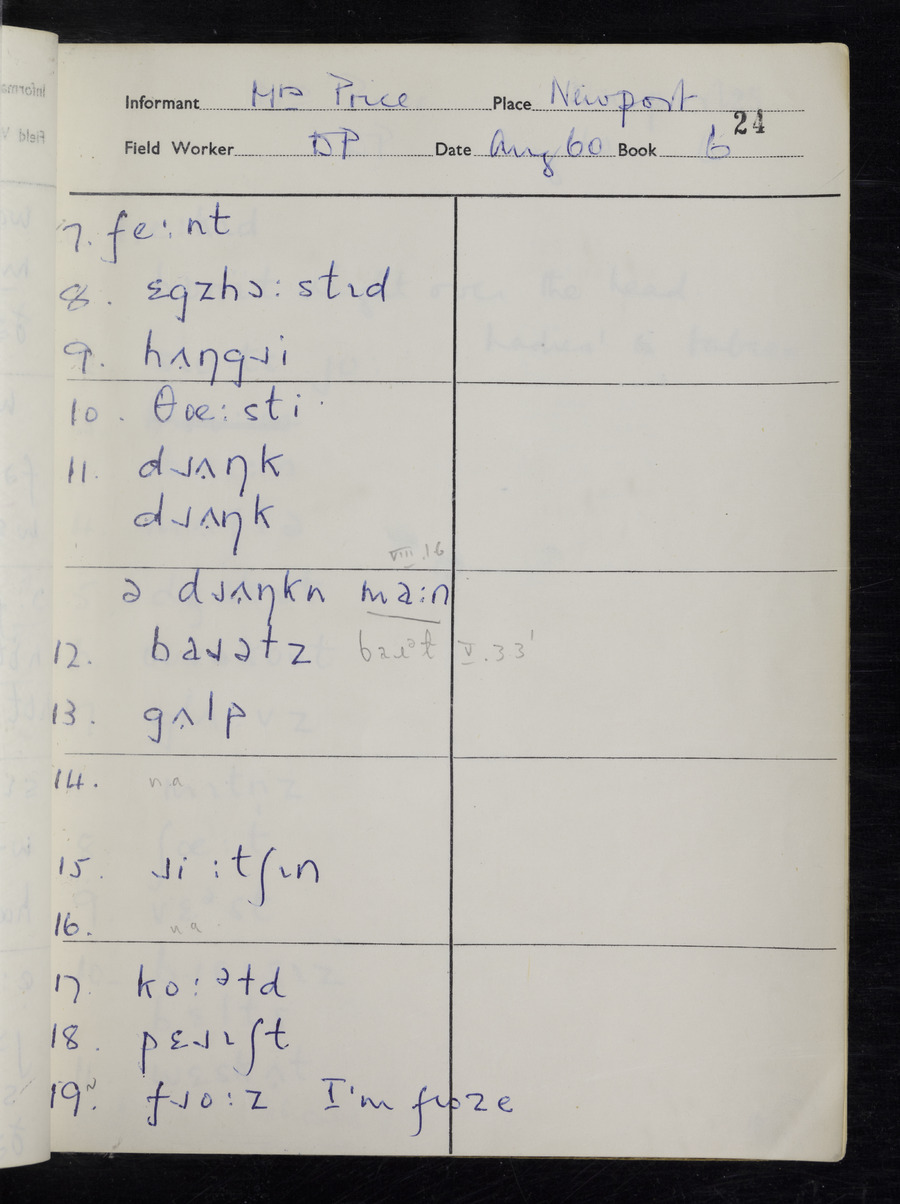 Informant Mr Price Place Newport
24
Field Worker DP Date Aug 60 Book 6
7. feːnt
8. ɛgzhɔːstɪd
9. hʌŋgɹi
10. θœːsti
11. dɹʌŋk
dɹʌŋk
VIII.16
ə dɹʌŋkn maːn
12. baɹəɫz V.33
13. gʌlp
14. na
15. ɹiːtʃɪn
16. na
17. koːəɫd
18. pɛɹɪʃt
19. fɹoːz I'm froze